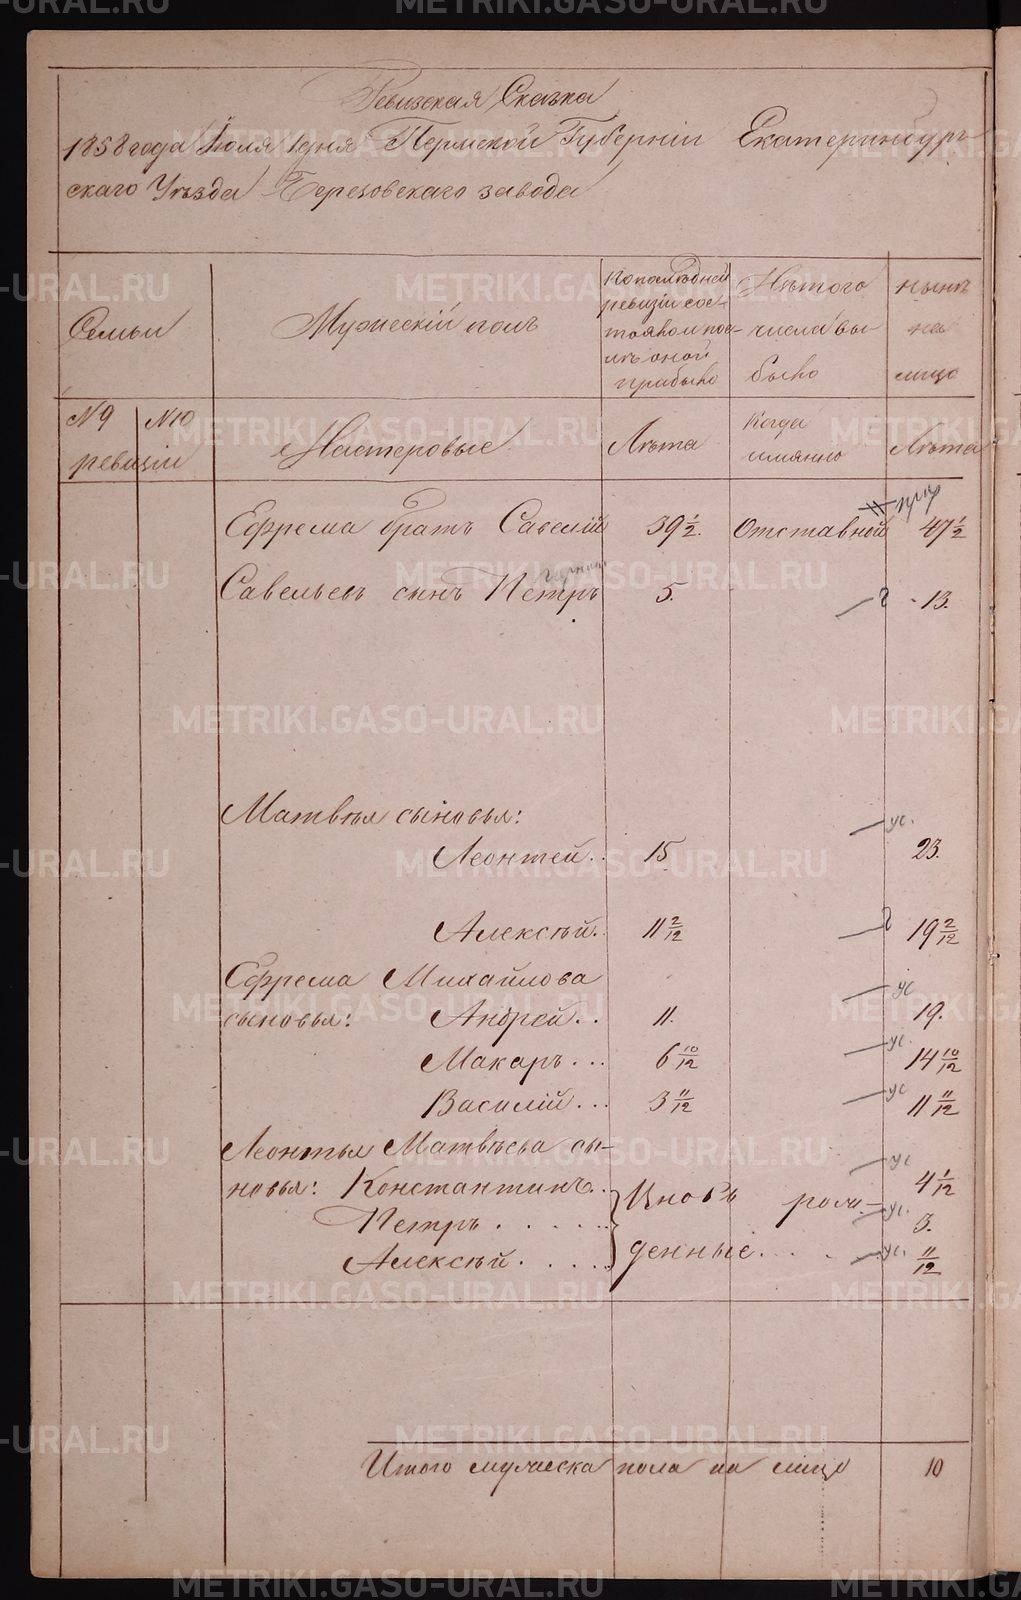 Ревизская Сказка
1858 года Iюля 1 дня Пермской Губернiи Екатеринбург-
скаго Уѣзда Березовскаго завода
Семьи
Мужескiй полъ
По последней
ревизiи сос-
тояло и пос-
лѣ оной
прибыло
Изъ того
числа вы-
было
нынѣ
на
лицо
№ 9
№ 10
ревизiи
Мастеровые
Лѣта
Когда
имянно
Лѣта
Ефрема братъ Савелiй 39 1/2. Отставной 47 1/2
Савельевъ сынъ Петръ 5. 13.
Матвѣя сыновья:
ус.
Леонтей.. 15 23.
Алексѣй. 11 2/12 19 2/12
Ефрема Михайлова
ус
сыновья: Андрей.. 11. 19.
ус.
Макаръ... 6 10/12 14 10/12
ус
Василiй... 3 11/12 11 11/12
Леонтья Матвѣева сы-
ус
новья: Константинъ.. Вновь рож- 4 1/12
ус.
Петръ...... 3.
Алексѣй..... денные.... ус. 11/12
Итого мужеска пола на лицо 10
METRIKI.GASO-URAL.RU